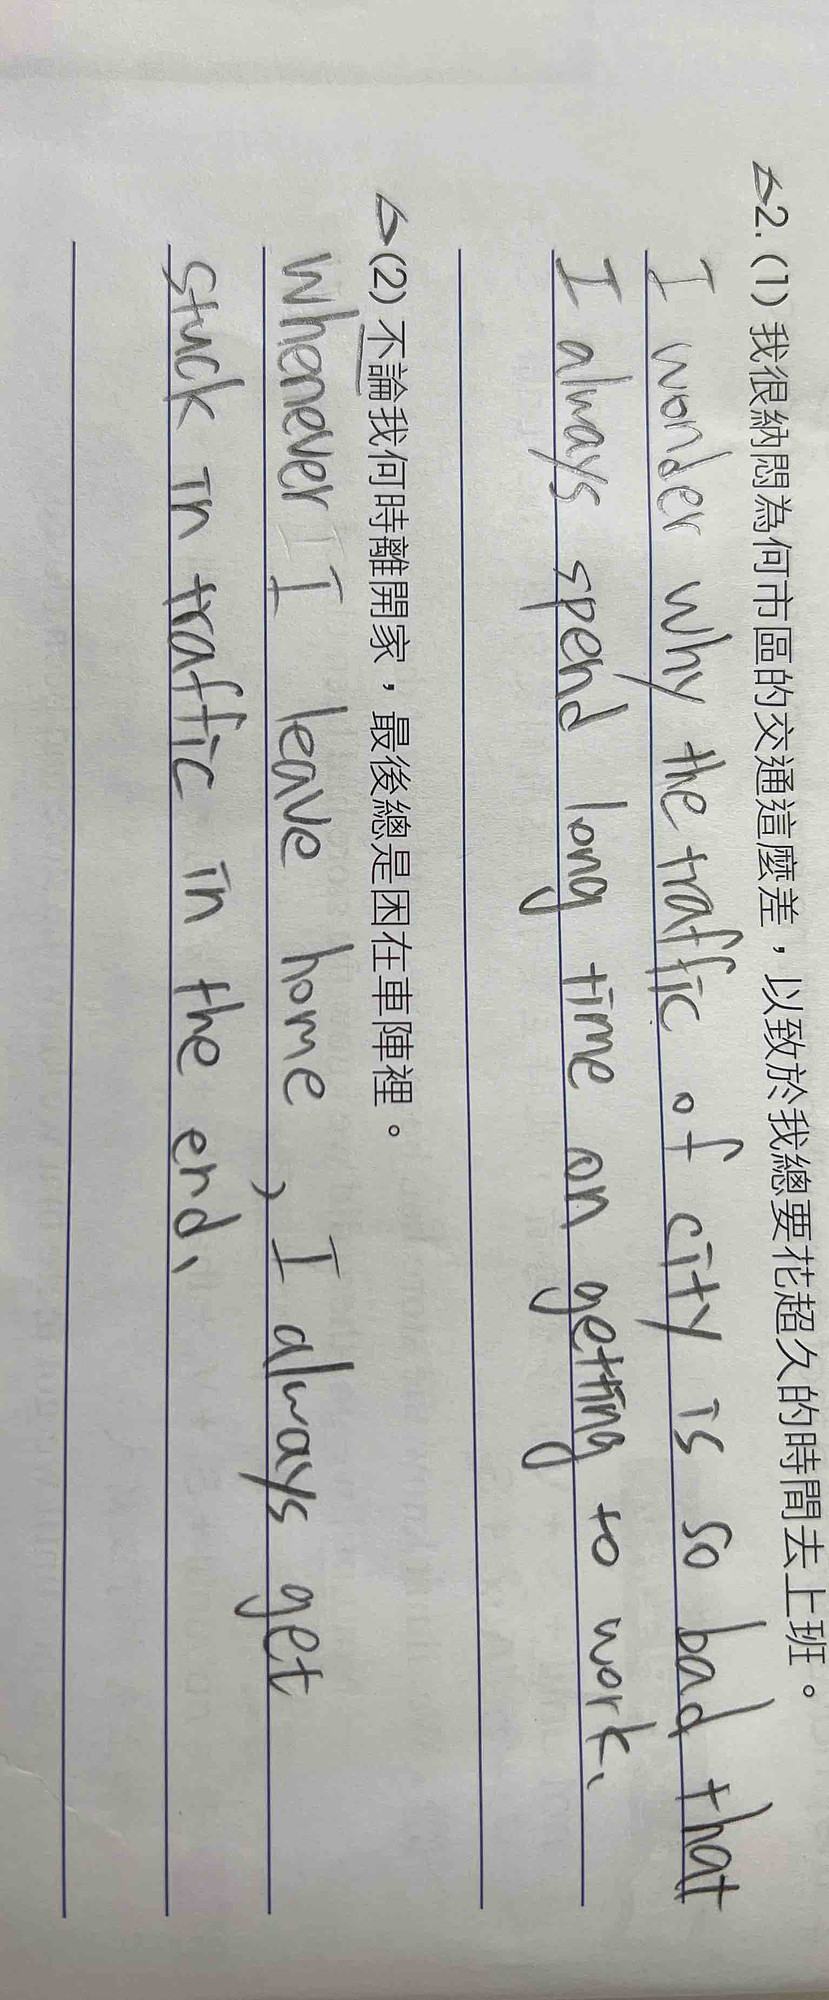 2. (1) 我很納悶為何市區的交通這麼差，以致於我總要花超久的時間去上班。
I wonder why the traffic of city is so bad that
I always spend long time on getting to work.
(2) 不論我何時離開家，最後總是困在車陣裡。
Whenever I leave home, I always get
stuck in traffic in the end.